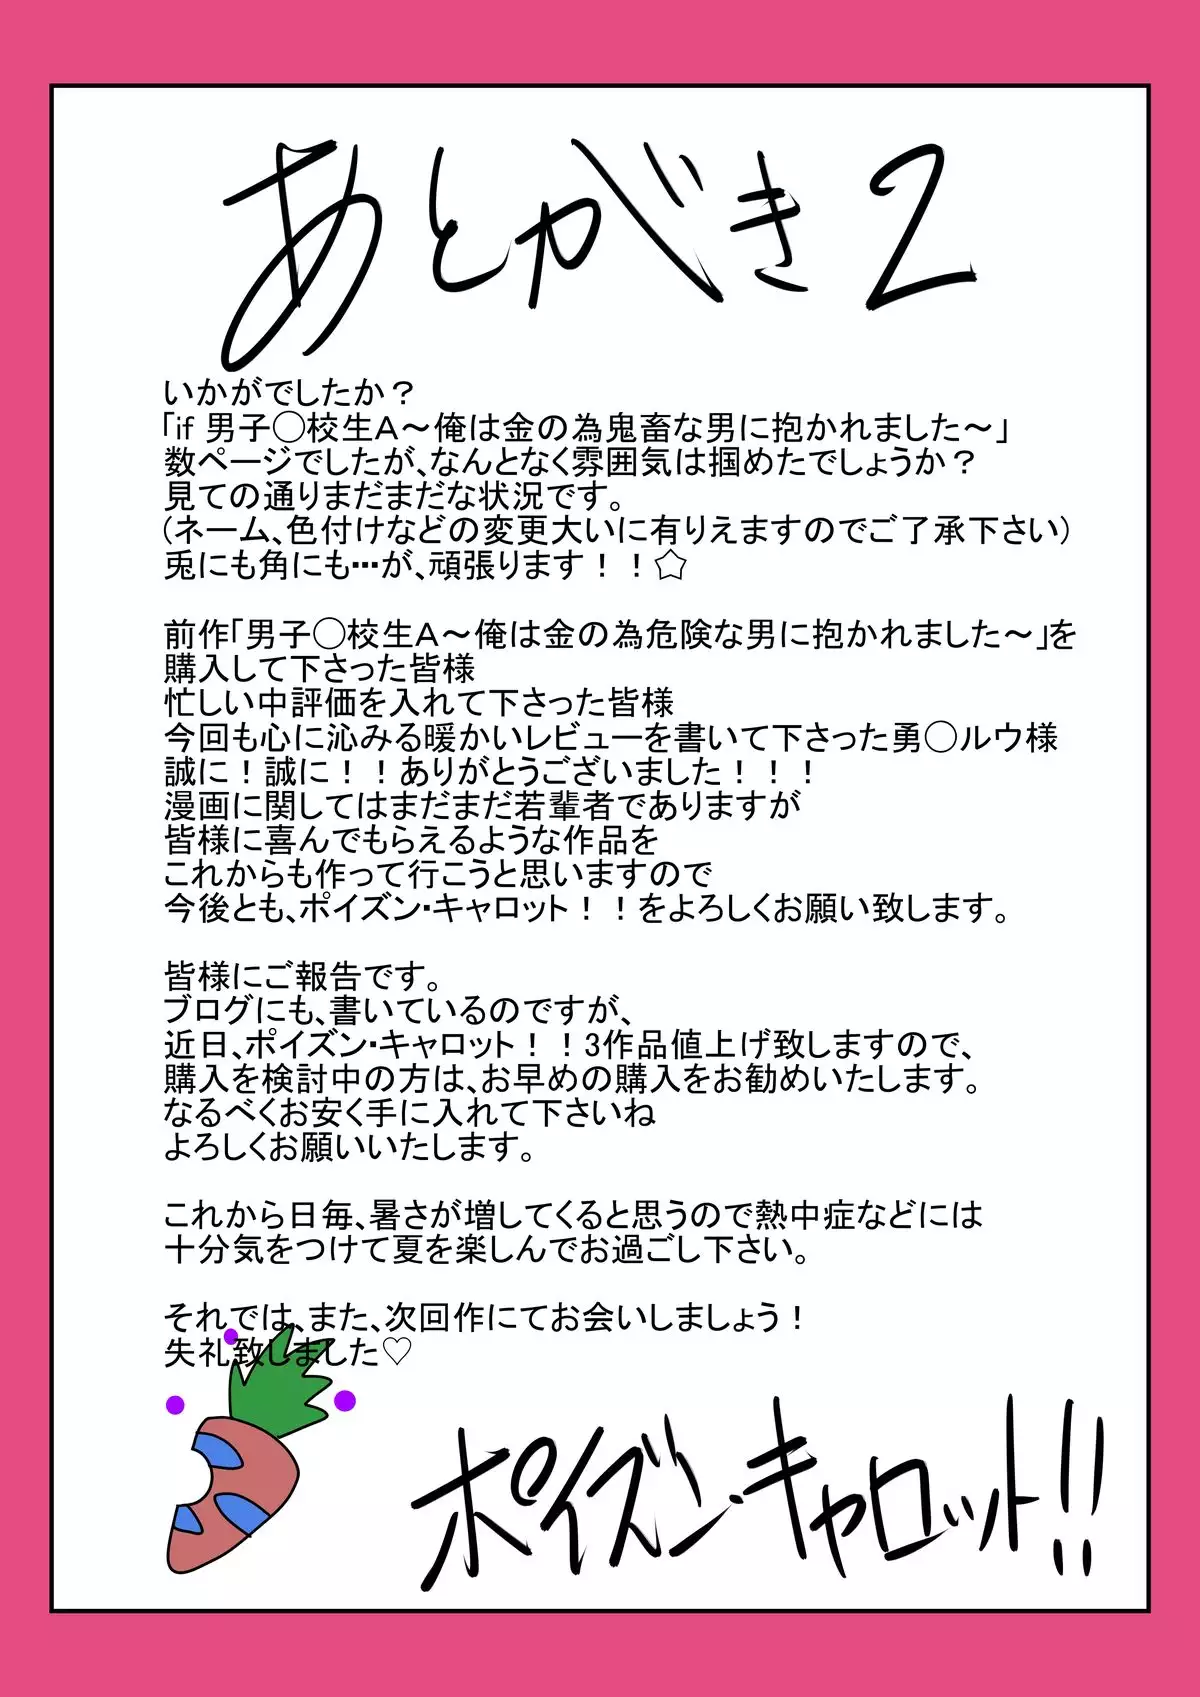 あとがき2
いかがでしたか？
「if 男子◯校生A～俺は金の為鬼畜な男に抱かれました～」
数ページでしたが、なんとなく雰囲気は掴めたでしょうか？
見ての通りまだまだな状況です。
(ネーム、色付けなどの変更大いに有りえますのでご了承下さい)
兎にも角にも…が、頑張ります！！☆
前作「男子◯校生A～俺は金の為危険な男に抱かれました～」を
購入して下さった皆様
忙しい中評価を入れて下さった皆様
今回も心に沁みる暖かいレビューを書いて下さった勇◯ルウ様
誠に！誠に！！ありがとうございました！！！
漫画に関してはまだまだ若輩者でありますが
皆様に喜んでもらえるような作品を
これからも作って行こうと思いますので
今後とも、ポイズン・キャロット！！をよろしくお願い致します。
皆様にご報告です。
ブログにも、書いているのですが、
近日、ポイズン・キャロット！！3作品値上げ致しますので、
購入を検討中の方は、お早めの購入をお勧めいたします。
なるべくお安く手に入れて下さいね
よろしくお願いいたします。
これから日毎、暑さが増してくると思うので熱中症などには
十分気をつけて夏を楽しんでお過ごし下さい。
それでは、また、次回作にてお会いしましょう！
失礼致しました♡
ポイズン・キャロット!!